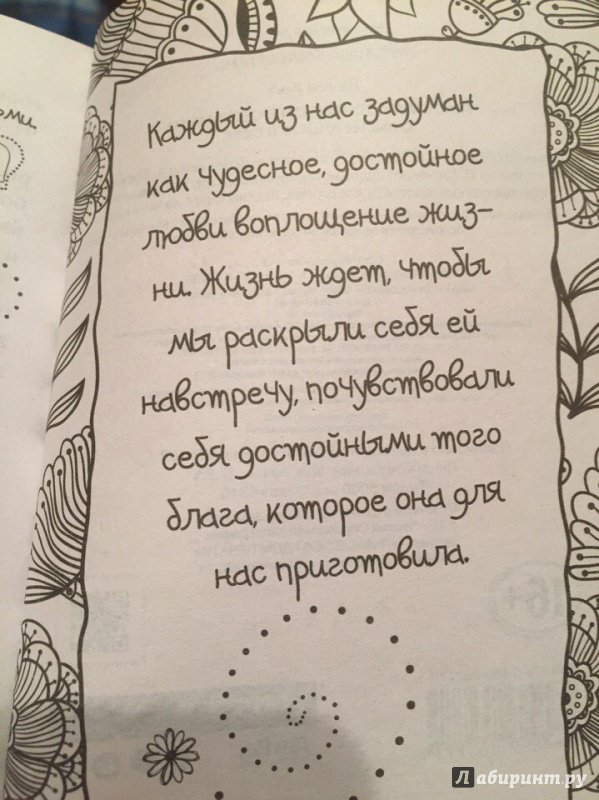 оми.
Каждый из нас задуман
как чудесное, достойное
любви воплощение жиз-
ни. Жизнь ждет, чтобы
мы раскрыли себя ей
навстречу, почувствовали
себя достойными того
блага, которое она для
нас приготовила.
16+
Лабиринт.ру